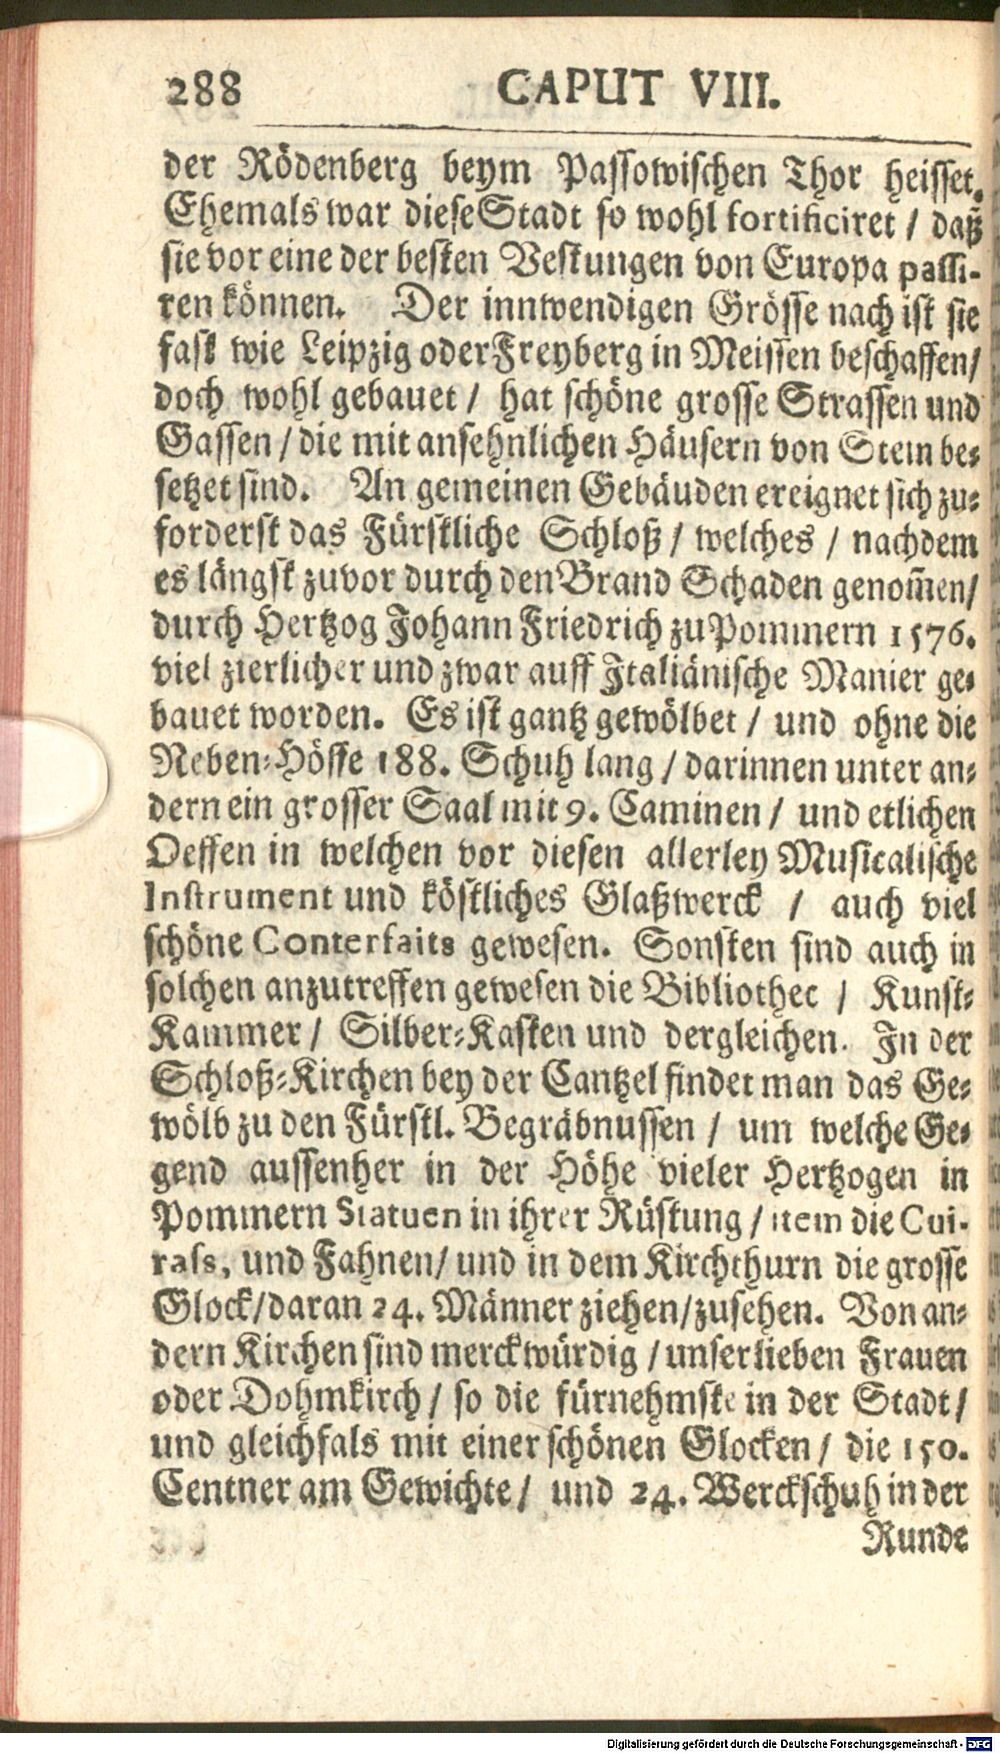 288 CAPUT VIII.
der Rödenberg beym Passowischen Thor heisset.
Ehemals war diese Stadt so wohl fortificiret / daß
sie vor eine der besten Vestungen von Europa passi-
ren können. Der innwendigen Grösse nach ist sie
fast wie Leipzig oder Freyberg in Meissen beschaffen/
doch wohl gebauet / hat schöne grosse Strassen und
Gassen / die mit ansehnlichen Häusern von Stein be-
setzet sind. An gemeinen Gebäuden ereignet sich zu-
forderst das Fürstliche Schloß / welches / nachdem
es längst zuvor durch den Brand Schaden genom̃en/
durch Hertzog Johann Friedrich zu Pommern 1576.
viel zierlicher und zwar auff Italiänische Manier ge-
bauet worden. Es ist gantz gewölbet / und ohne die
Neben-Höffe 188. Schuh lang / darinnen unter an-
dern ein grosser Saal mit 9. Caminen / und etlichen
Oeffen in welchen vor diesen allerley Musicalische
Instrument und köstliches Glaßwerck / auch viel
schöne Conterfaits gewesen. Sonsten sind auch in
solchen anzutreffen gewesen die Bibliothec / Kunst-
Kammer / Silber-Kasten und dergleichen. In der
Schloß-Kirchen bey der Cantzel findet man das Ge-
wölb zu den Fürstl. Begräbnussen / um welche Ge-
gend aussenher in der Höhe vieler Hertzogen in
Pommern Statuen in ihrer Rüstung / item die Cui-
rass, und Fahnen/ und in dem Kirchthurn die grosse
Glock/daran 24. Männer ziehen/zusehen. Von an-
dern Kirchen sind merckwürdig / unser lieben Frauen
oder Dohmkirch / so die fürnehmste in der Stadt /
und gleichfals mit einer schönen Glocken / die 150.
Centner am Gewichte / und 24. Werckschuh in der
Runde
Digitalisierung gefördert durch die Deutsche Forschungsgemeinschaft - DFG